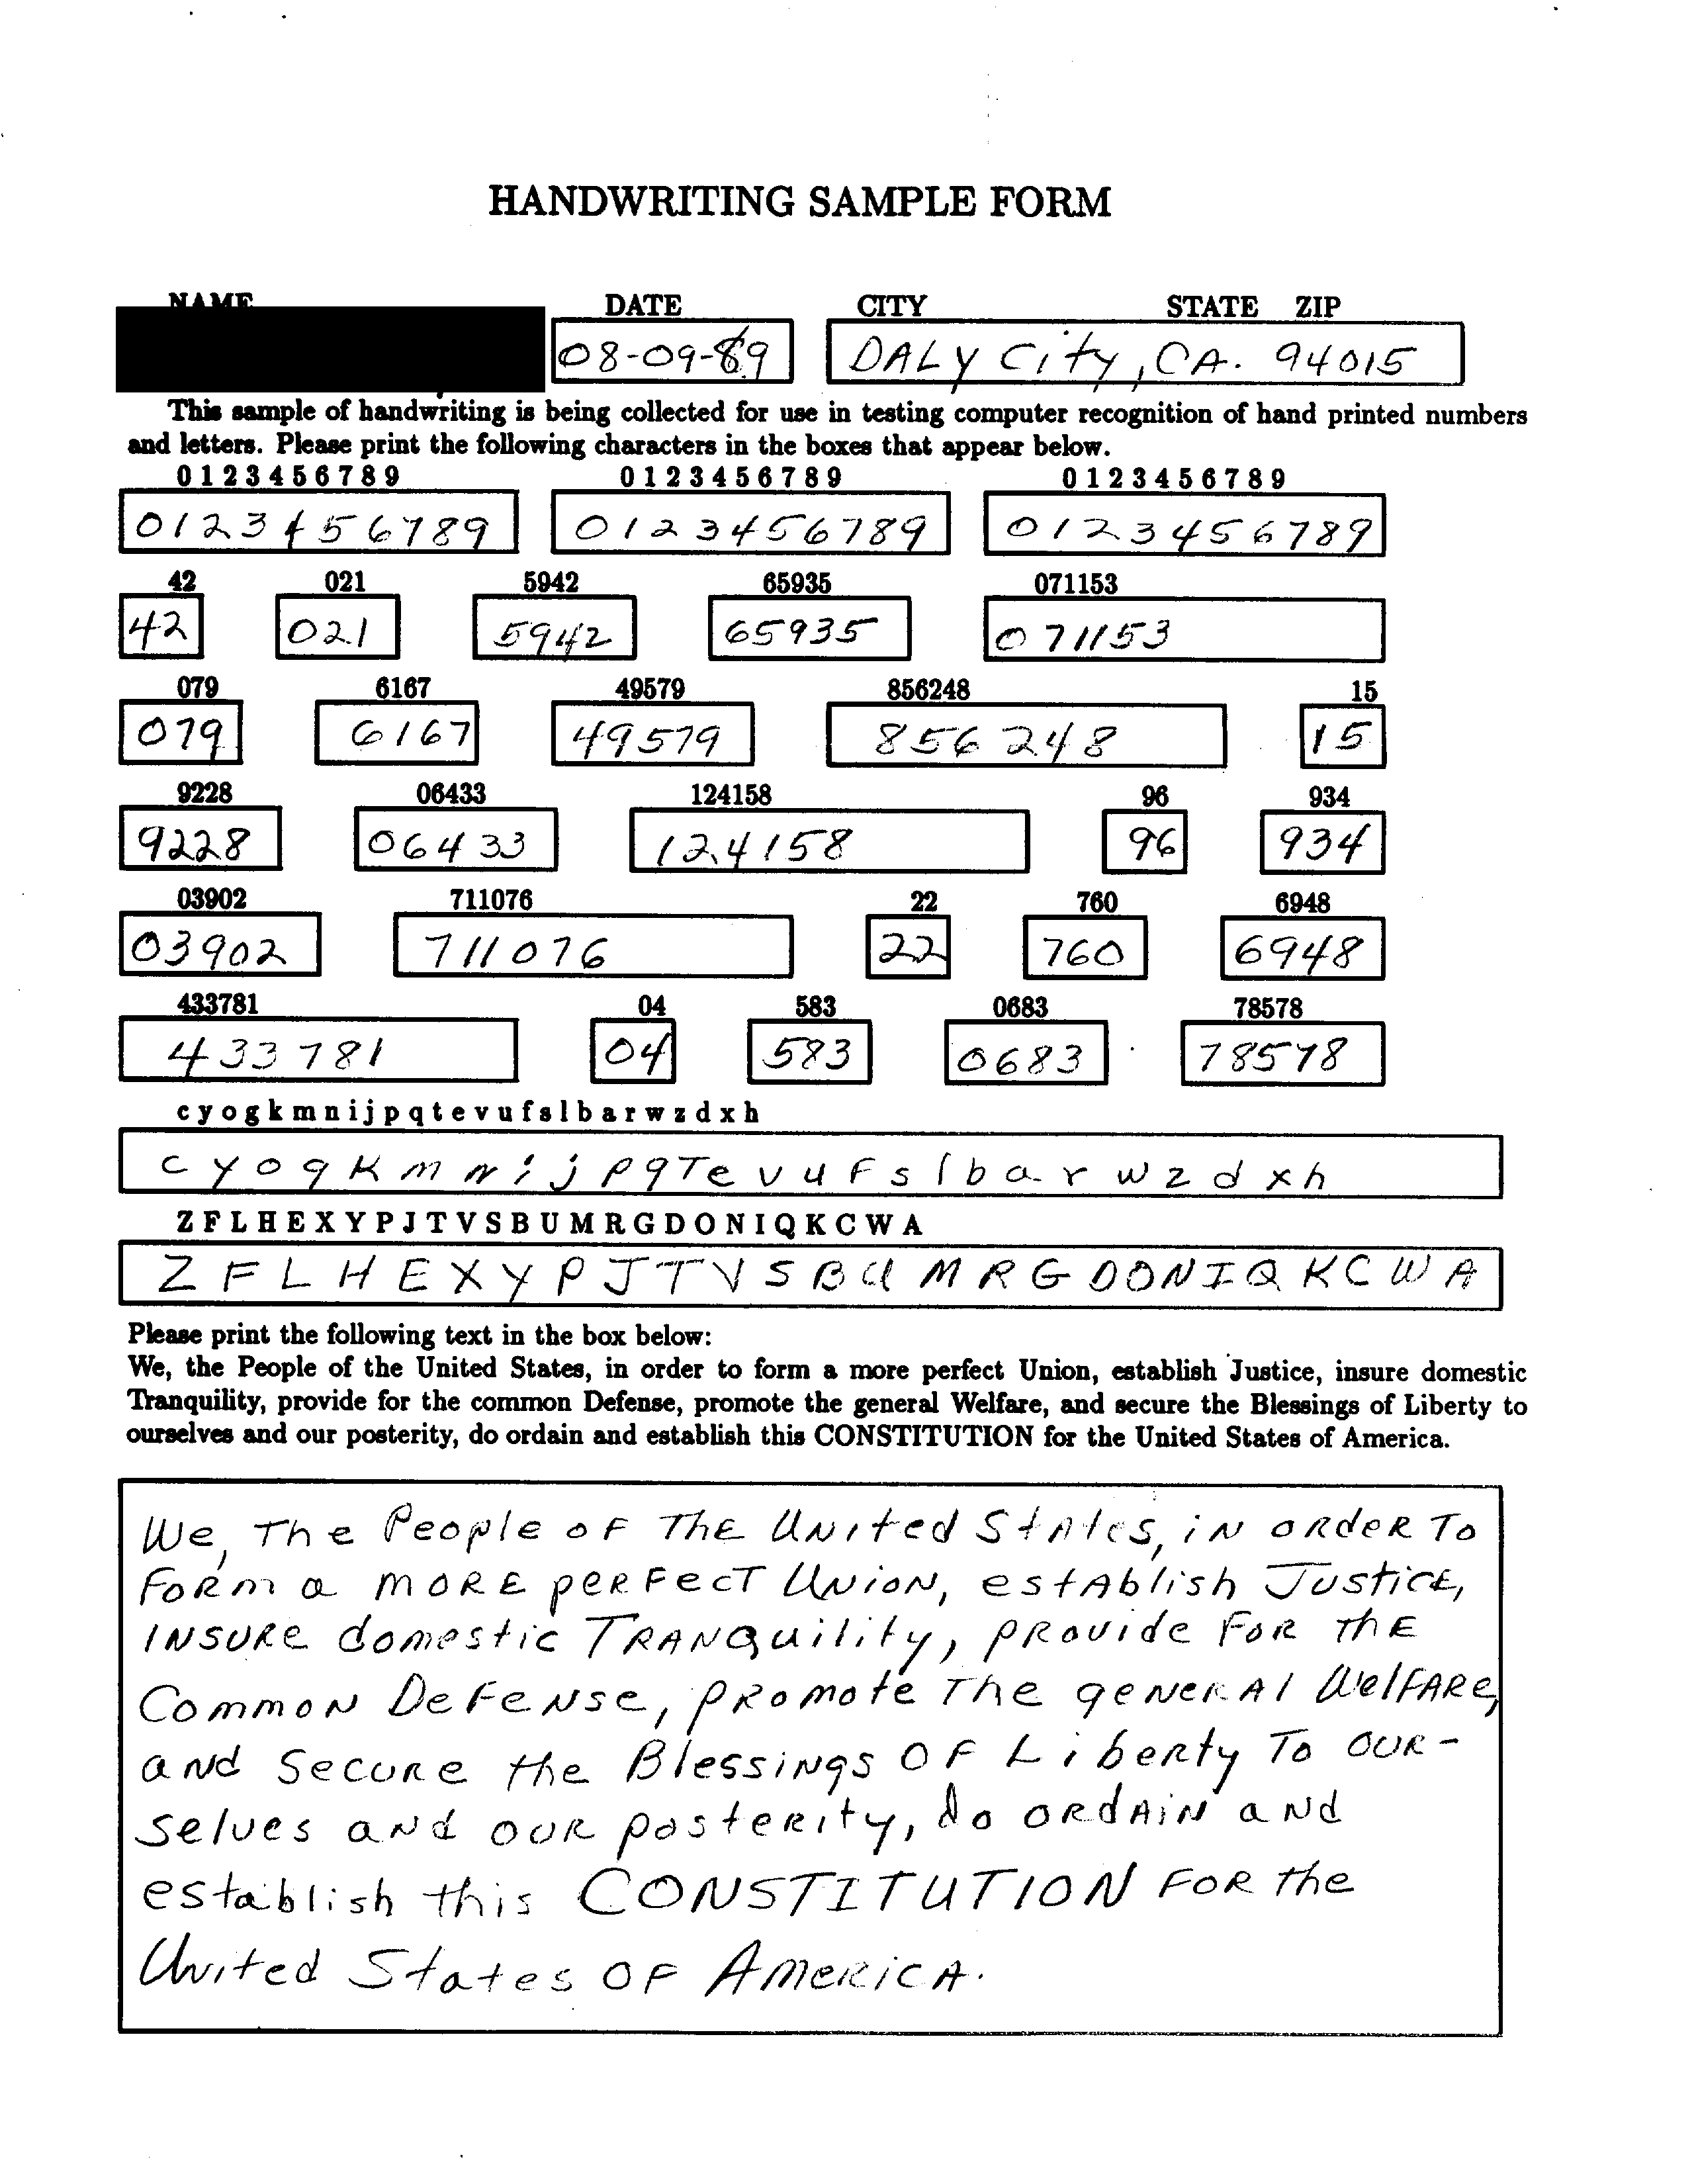 HANDWRITING SAMPLE FORM
NAME DATE CITY STATE ZIP
08-09-89 DALY City, CA. 94015
This sample of handwriting is being collected for use in testing computer recognition of hand printed numbers
and letters. Please print the following characters in the boxes that appear below.
0 1 2 3 4 5 6 7 8 9 0 1 2 3 4 5 6 7 8 9 0 1 2 3 4 5 6 7 8 9
0123456789 0123456789 0123456789
42 021 5942 65935 071153
42 021 5942 65935 071153
079 6167 49579 856248 15
079 6167 49579 856248 15
9228 06433 124158 96 934
9228 06433 124158 96 934
03902 711076 22 760 6948
03902 711076 22 760 6948
433781 04 583 0683 78578
433781 04 583 0683 78578
c y o g k m n i j p q t e v u f s l b a r w z d x h
c y o g K m n i j p q T e v u F s l b a r w z d x h
Z F L H E X Y P J T V S B U M R G D O N I Q K C W A
Z F L H E X Y P J T V S B U M R G D O N I Q K C W A
Please print the following text in the box below:
We, the People of the United States, in order to form a more perfect Union, establish Justice, insure domestic
Tranquility, provide for the common Defense, promote the general Welfare, and secure the Blessings of Liberty to
ourselves and our posterity, do ordain and establish this CONSTITUTION for the United States of America.
We, The People oF ThE UNited StAtes, iN oRdeR To
FoRm a moRE peRFecT UNioN, estAblish JusticE,
INSURe domestic TRANQuility, pRovide FoR thE
CommoN DeFeNse, pRomote The geNeRAl WelFARe,
aNd Secure the BlessiNgs OF Liberty To OUR-
selves aNd ouR posteRity, do oRdAiN aNd
establish this CONSTITUTION FOR the
UNited States OF AmeRicA.